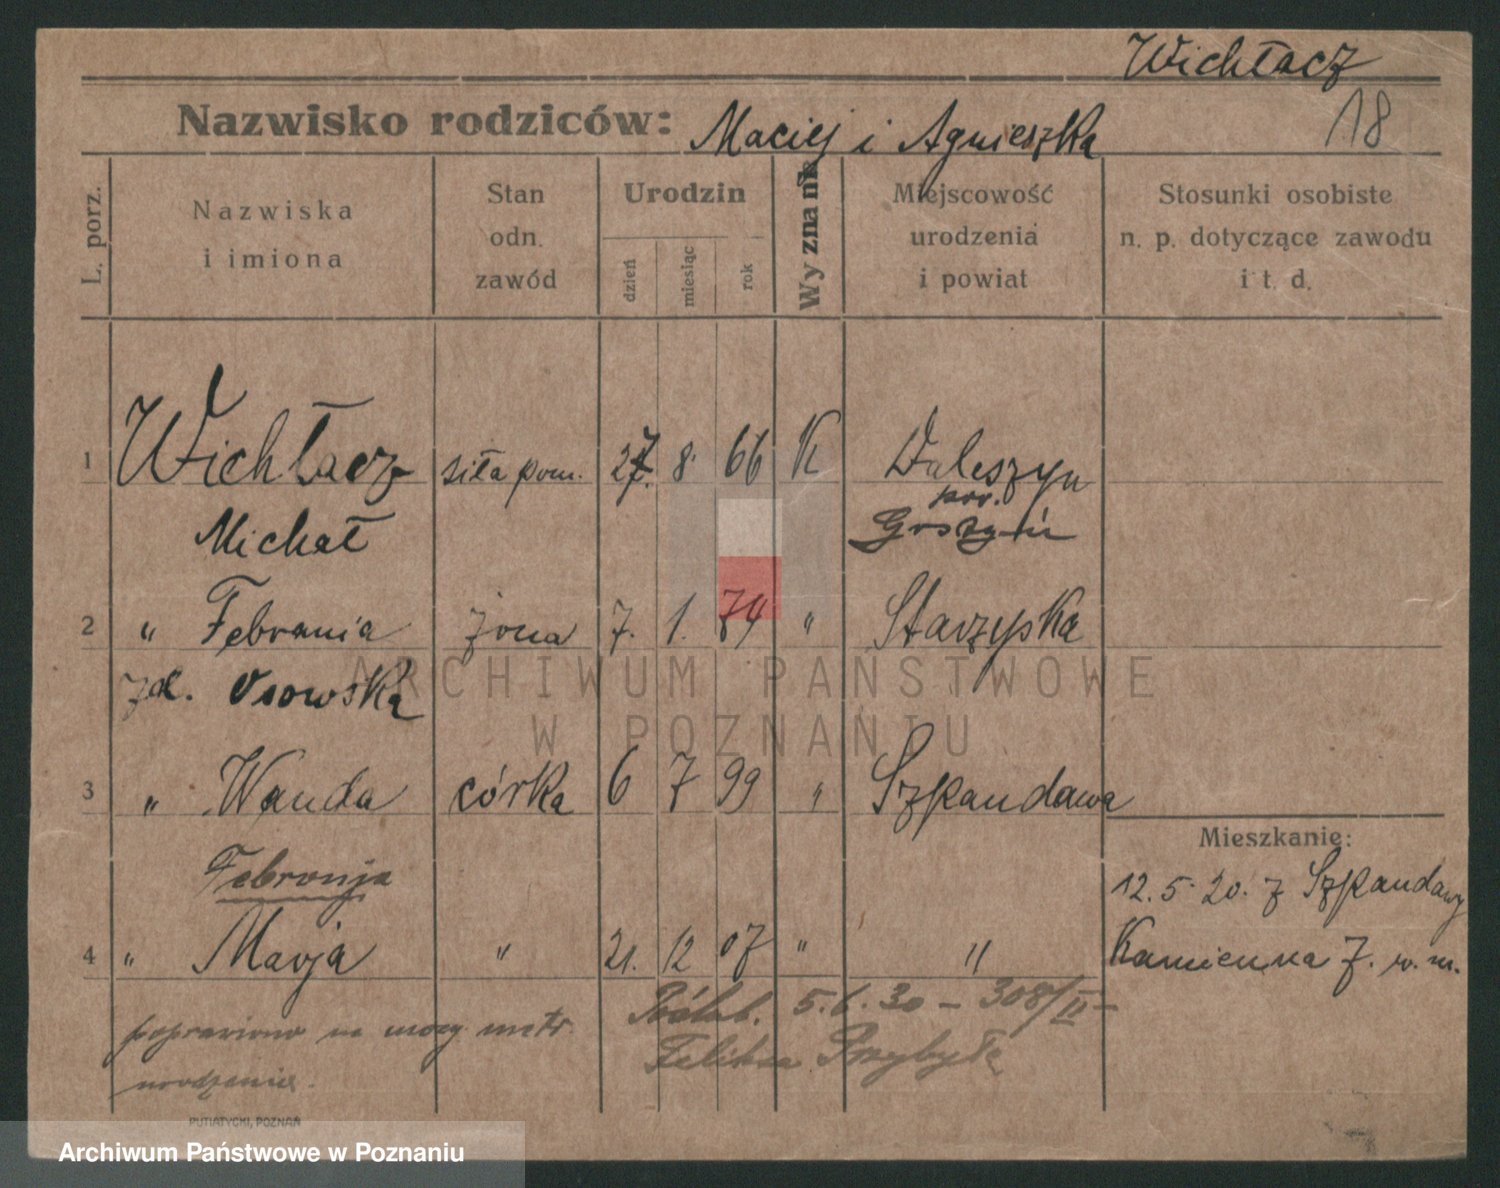 Wichłacz
Nazwisko rodziców: Maciej i Agnieszka 18
L. porz.
Nazwiska i imiona
Stan odn. zawód
Urodzin
dzień miesiąc rok
Wyznanie
Miejscowość urodzenia i powiat
Stosunki osobiste n. p. dotyczące zawodu i t. d.
1 Wichłacz siła pom. 27. 8 66 K Daleszyn
pow.
Michał Gostyń
2 " Febrania żona 7. 1. 74 " Starzyska
zd. Osowska
ARCHIWUM PAŃSTWOWE
W POZNANIU
3 " Wanda córka 6 7 99 " Szkandawa
Mieszkanie:
Febronja
12.5.20. z Szkandawy
4 " Marja " 21. 12 07 " "
Kamienna 7. w. m.
5.6.30 – 308/II –
poprawiono na mocy metr. Feliksa Przybyłę
urodzenia.
PUTIATYCKI, POZNAŃ
Archiwum Państwowe w Poznaniu